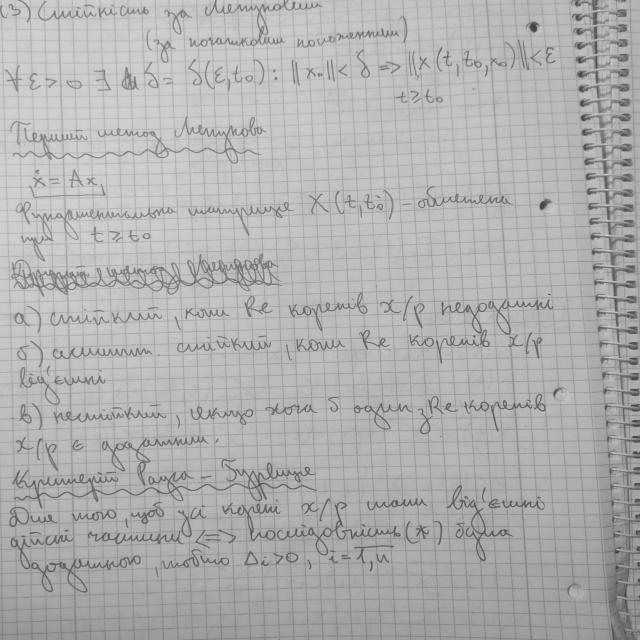 (3) Стійкість за Ляпуновим
(за початковим положенням)
∀ε>0 ∃ δ = δ(ε,t₀): ||x₀||<δ ⇒ ||x(t,t₀,x₀)||<ε
t≥t₀
Перший метод Ляпунова
ẋ = Ax,
Фундаментальна матриця X(t,t₀) – обмежена
при t≥t₀
а) стійкий, коли Re коренів х/р недодатні
б) асимпт. стійкий, коли Re коренів х/р
від'ємні
в) нестійкий, якщо хоча б один з Re коренів
х/р є додатним.
Критерій Рауса – Гурвіца
Для того, щоб усі корені х/р мали від'ємні
дійсні частини ⇔ послідовність (*) була
додатною, тобто Δi>0, i=1,n